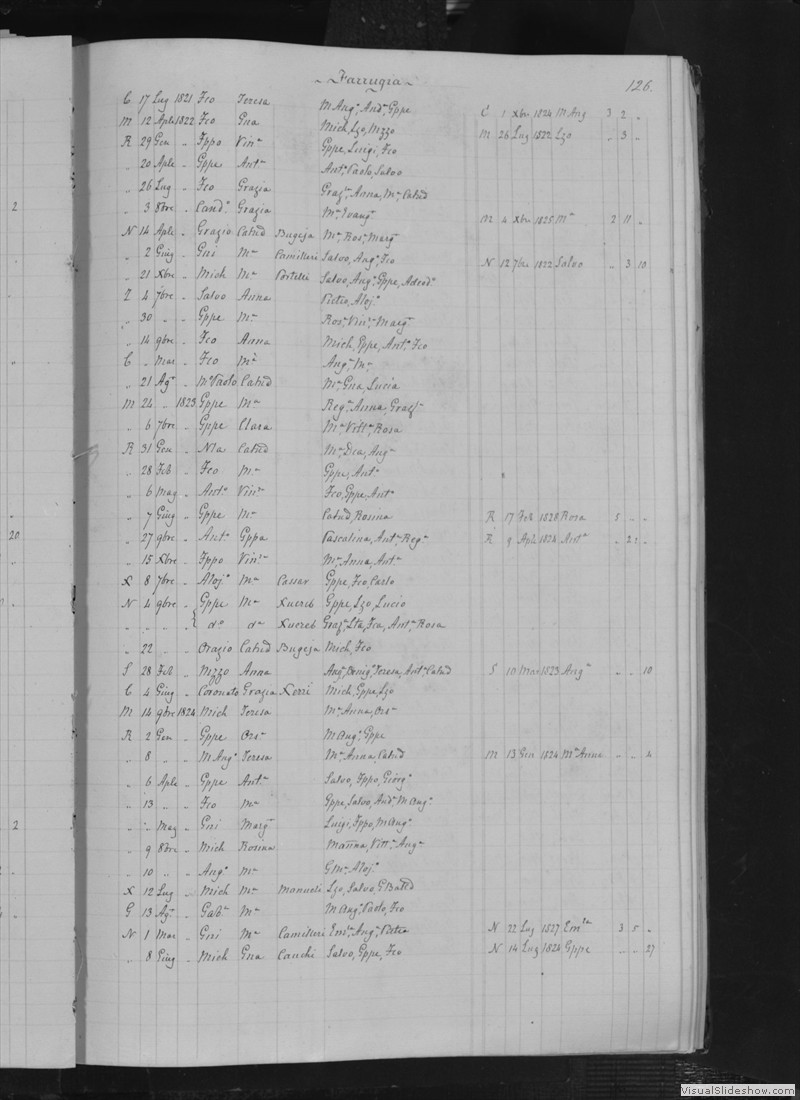 ~ Farrugia ~ 126.
C 17 Lug 1821 Fco Teresa M Ango, Anda, Gppe C 1 Xbre 1824 M Ang 3 2 "
M 12 Aple 1822 Fco Gna Mich, Lzo, Nzzo M 26 Lug 1822 Lzo " 3 "
R 29 Gen " Fppo Vina Gppe, Luigi, Fco
" 20 Aple " Gppe Anta Anta, Paolo, Salvo
" 26 Lug " Fco Grazia Graza, Anna, Ma, Catud
" 3 8bre " Cando Grazia Ma, Evanga M 4 Xbre 1825 Ma 2 11 "
N 14 Aple " Grazio Catud Bugeja Ma, Rosa, Marga
" 2 Giug " Gni Ma Camilleri Salvo, Ango, Fco
" 21 Xbre " Mich Ma Portelli Salvo, Ango, Gppe, Adeodo N 12 7bre 1822 Salvo " 3 10
Z 4 7bre " Salvo Anna Pietro, Alojo
" 30 " " Gppe Ma Rosa, Vina, Marga
" 14 9bre " Fco Anna Mich, Gppe, Anto, Fco
C " Mar " Fco Ma Anga, Ma
" 21 Ago " Mo Paolo Catud Ma, Gna, Lucia
M 24 " 1823 Gppe Ma Rega, Anna, Graza
" 6 7bre " Gppe Clara Ma, Vitta, Rosa
R 31 Gen " Nla Catud Ma, Dca, Anga
" 28 Feb " Fco Ma Gppe, Anta
" 6 Mag " Anto Vina Fco, Gppe, Anta
" 7 Giug " Gppe Ma Catud, Rosina R 17 Feb 1828 Rosa 5 " "
20 " 27 9bre " Anto Gppa Pascalina, Anta, Rega R 9 Aple 1824 Anta
" 15 Xbre " Fppo Vinza Ma, Anna, Anta
X 8 7bre " Alojo Ma Cassar Gppe, Fco, Carlo
N 4 9bre " Gppe Ma Xuereb Gppe, Lzo, Lucio
" " " " do da Xuereb Graza, Lta, Fca, Anta, Rosa
" 22 " " Orazio Catud Bugeja Mich, Fco
S 28 Feb " Nzzo Anna Teresa, Anta, Catud S 10 Mar 1823 Anga " " 10
C 4 Giug " Coronato Grazia Xerri Mich, Gppe, Lzo
M 14 9bre 1824 Mich Teresa Ma, Anna, Orsa
R 2 Gen " Gppe Orsa M Ango, Gppe
" 8 " " M Ango Teresa Ma, Anna, Catud M 13 Gen 1824 Ma Anna " " 4
" 6 Aple " Gppe Anta Salvo, Fppo, Giorgo
" 13 " " Fco Ma Gppe, Salvo, Anda, M Ango
2 " " Mag " Gni Marga Luigi, Fppo, M Ango
" 9 8bre " Mich Rosina Marina, Vitta, Anga
" 10 " " Ango Ma G Ma, Alojo
X 12 Lug " Mich Ma Manueli Lzo, Salvo, G Batta
G 13 Ago " Gabe Ma M Ango, Paolo, Fco
N 1 Mar " Gni Ma Camilleri Ema, Anga, Pietra N 22 Lug 1827 Emla 3 5 "
" 8 Giug " Mich Gna Cauchi Salvo, Gppe, Fco N 14 Lug 1824 Gppe " " 27
VisualSlideshow.com